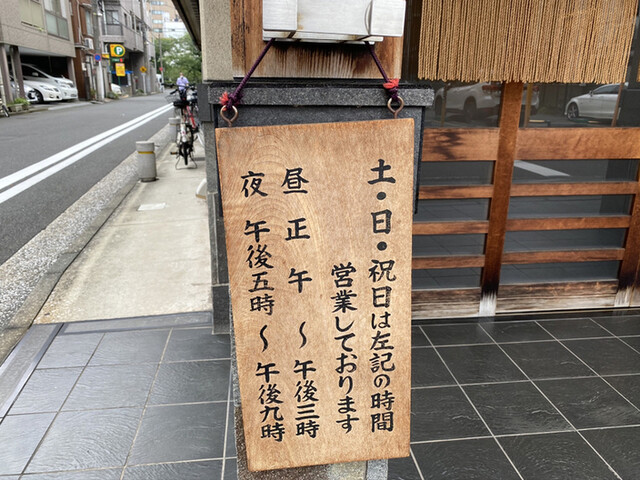 土・日・祝日は左記の時間
営業しております
昼 正午 〜 午後三時
夜 午後五時 〜 午後九時
P